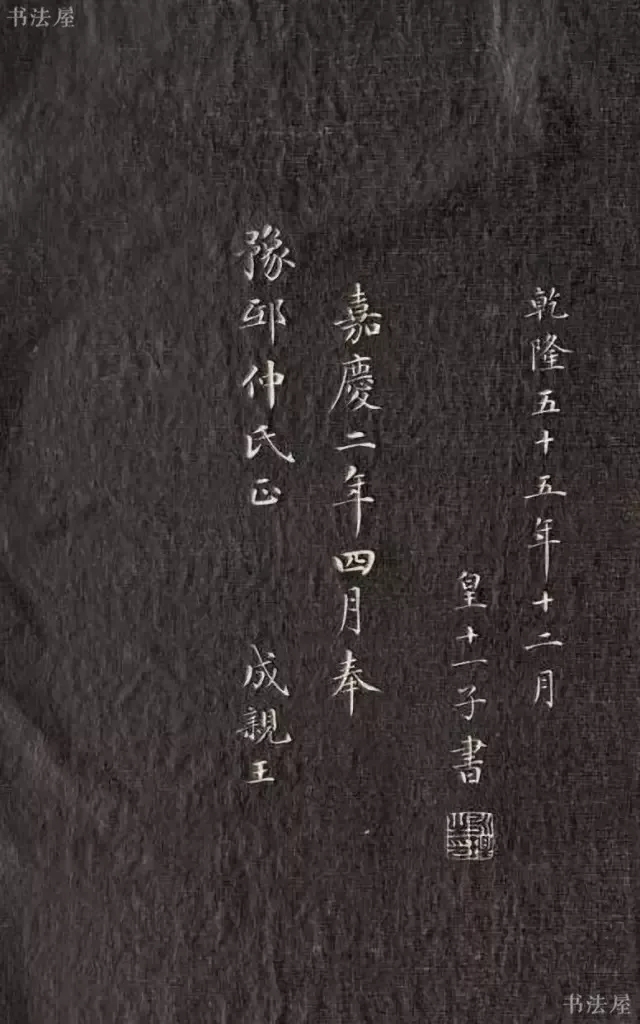 书法屋
乾隆五十五年十二月
皇十一子書
嘉慶二年四月奉
豫邨仲氏正 成親王
书法屋